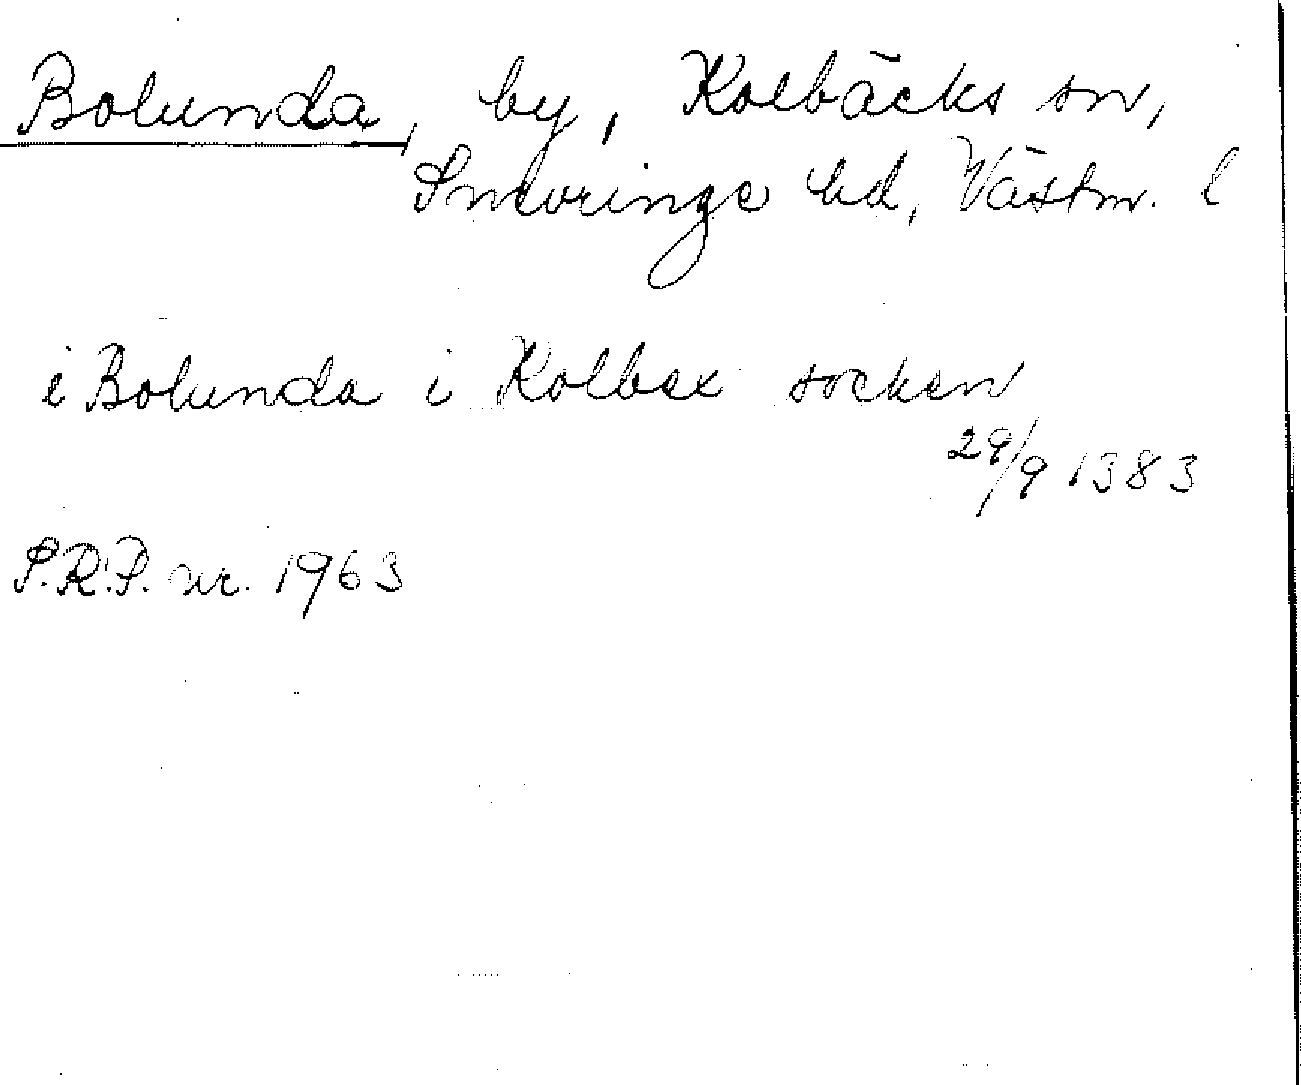 Bolunda, by, Kolbäcks sn,
Snevringe hd, Västm. l
i Bolunda i Kolbex socken
29/9 1383
S.R.P. nr. 1963